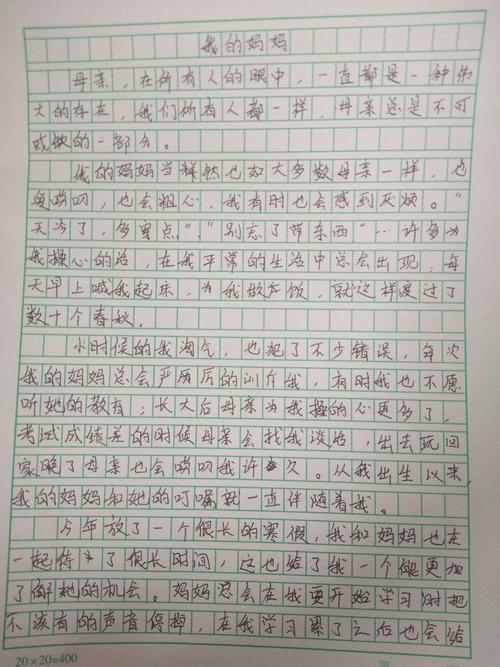 我的妈妈
母亲，在所有人的眼中，一直都是一种伟
大的存在，我们所有人都一样，母亲总是不可
或缺的一部分。
我的妈妈当然也如大多数母亲一样，也
爱唠叨，也会粗心，我有时也会感到厌烦。“
天冷了，多穿点”，“别忘了带东西”…许多为
我操心的话，在我平常的生活中总会出现，每
天早上喊我起床，为我做户饭，就这样渡过了
数十个春秋。
小时候的我淘气，也犯了不少错误，每次
我的妈妈总会严厉厉的训斥我，有时我也不愿
听她的教育；长大后母亲为我操的心更多了，
考试成绩差的时候母亲会找我谈话，出去玩回
家晚了母亲也会唠叨我许久。从我出生以来，
我的妈妈和她的叮嘱就一直伴随着我。
今年放了一个很长的寒假，我和妈妈也在
一起待了很长时间，这也给了我一个能更加
了解她的机会。妈妈总会在我要开始学习时把
不该有的声音停掉，在我学习累了之后也会给
20×20=400